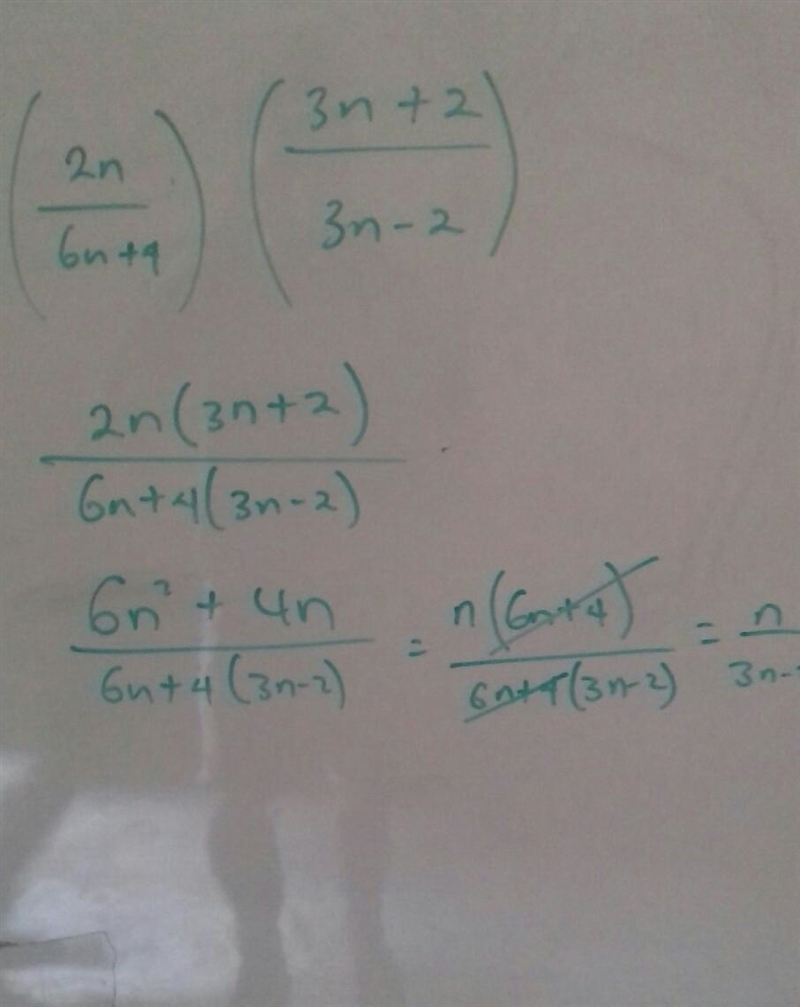 (2n/6n+4) (3n+2/3n-2)
2n(3n+2)/6n+4(3n-2)
6n²+4n/6n+4(3n-2) = n(6n+4)/6n+4(3n-2) = n/3n-